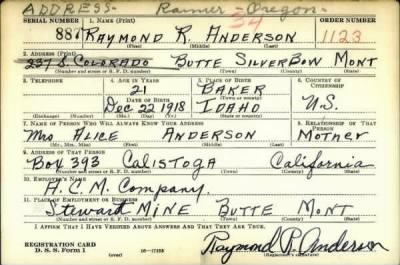 ADDRESS- Rainier - Oregon-
34
SERIAL NUMBER 1. NAME (Print) ORDER NUMBER
887 RAYMOND R. ANDERSON 1123
(First) (Middle) (Last)
2. ADDRESS (Print)
237 S. COLORADO BUTTE SILVERBOW MONT
(Number and street or R. F. D. number) (Town) (County) (State)
3. TELEPHONE 4. AGE IN YEARS 5. PLACE OF BIRTH 6. COUNTRY OF CITIZENSHIP
21 BAKER
DATE OF BIRTH (Town or county)
DEC 22 1918 IDAHO U.S.
(Exchange) (No.) (Mo.) (Day) (Yr.) (State or country)
7. NAME OF PERSON WHO WILL ALWAYS KNOW YOUR ADDRESS 8. RELATIONSHIP OF THAT PERSON
MRS ALICE ANDERSON MOTHER
(Mr., Mrs., Miss) (First) (Middle) (Last)
9. ADDRESS OF THAT PERSON
BOX 393 CALISTOGA California
(Number and street or R. F. D. number) (Town) (County) (State)
10. EMPLOYER'S NAME
A.C.M. COMPANY.
11. PLACE OF EMPLOYMENT OR BUSINESS
Stewart MINE BUTTE MONT
(Number and street or R. F. D. number) (Town) (County) (State)
I AFFIRM THAT I HAVE VERIFIED ABOVE ANSWERS AND THAT THEY ARE TRUE.
REGISTRATION CARD
D. S. S. Form 1 16-17105 Raymond R. Anderson
(Registrant's signature)